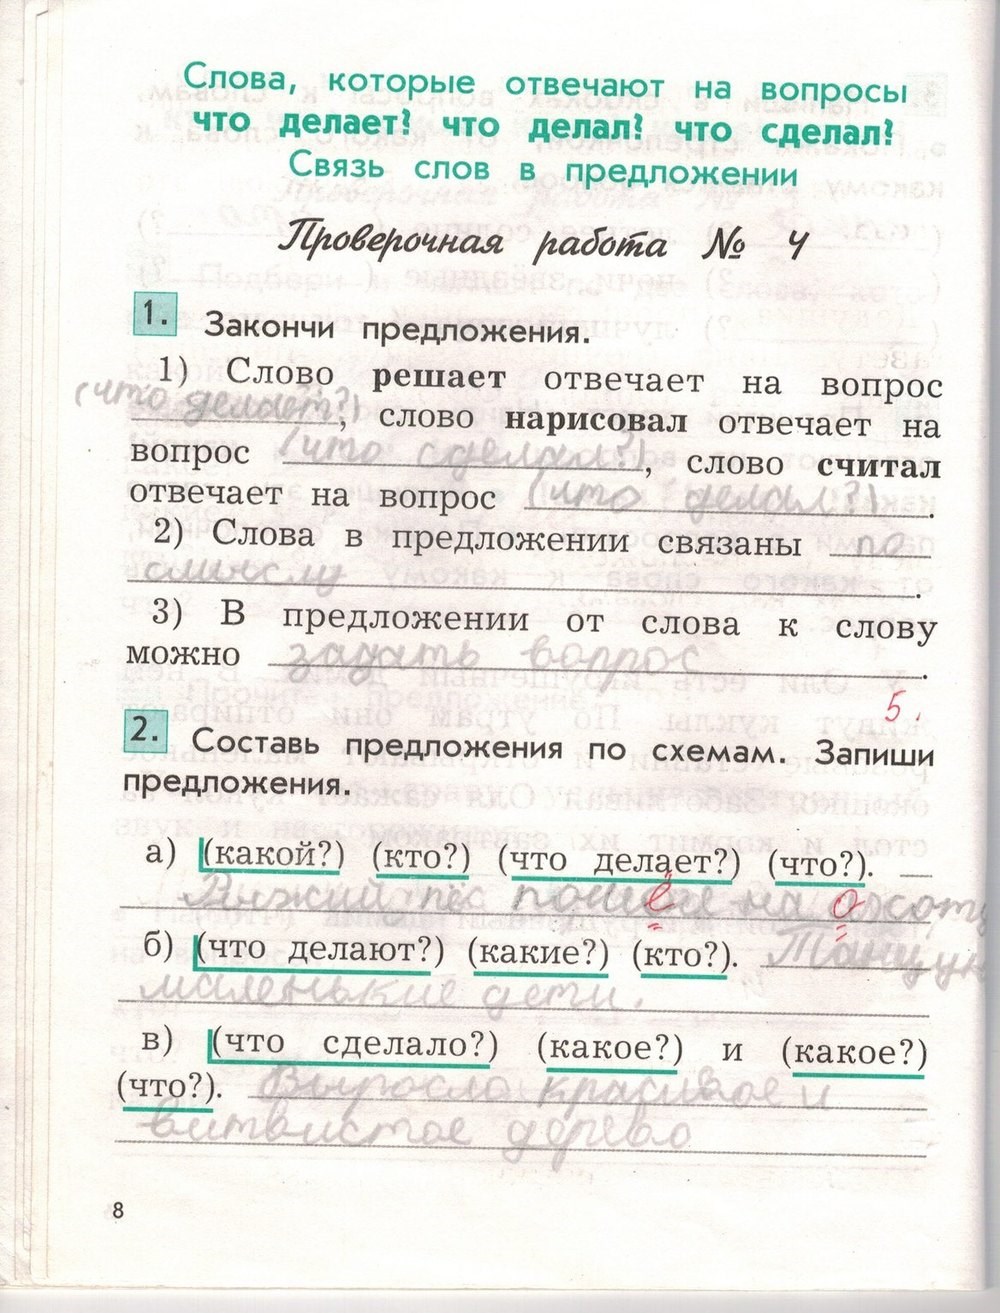 Слова, которые отвечают на вопросы
что делает? что делал? что сделал?
Связь слов в предложении
Проверочная работа № 4
1. Закончи предложения.
1) Слово решает отвечает на вопрос
(что делает?), слово нарисовал отвечает на
вопрос (что сделал?), слово считал
отвечает на вопрос (что делал?).
2) Слова в предложении связаны по
смыслу.
3) В предложении от слова к слову
можно задать вопрос.
5.
2. Составь предложения по схемам. Запиши
предложения.
а) (какой?) (кто?) (что делает?) (что?).
Рыжий пёс на охоту
б) (что делают?) (какие?) (кто?).
маленькие дети.
в) (что сделало?) (какое?) и (какое?)
(что?). Выросло красивое и
витвистое дерево
8